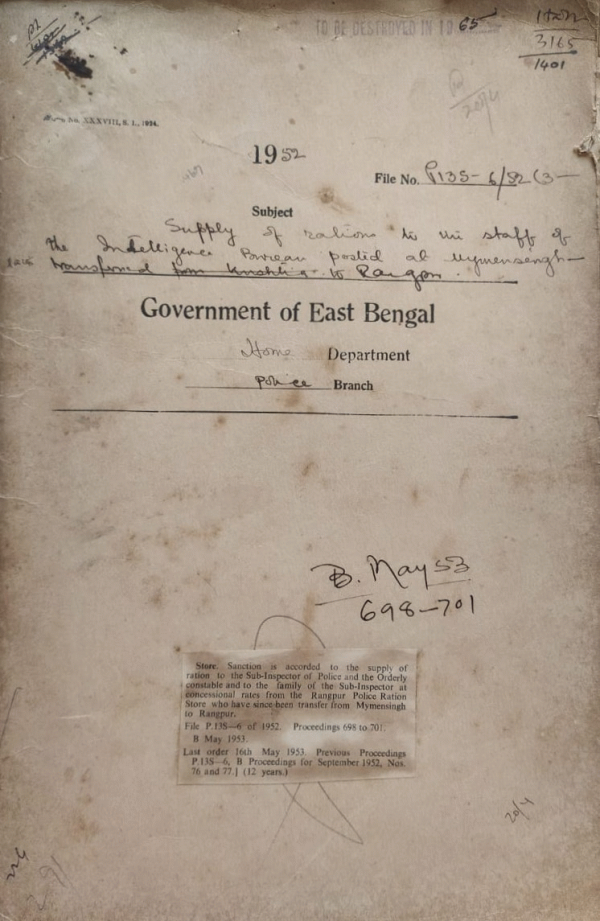 TO BE DESTROYED IN 19 65
3165
1401
Form No. XXXVIII, S. I., 1924.
1952
File No. P13S-6/52 (3-
Subject
Supply of rations to the staff of
the Intelligence Bureau posted at Mymensingh-
transferred from to Rangpur.
Government of East Bengal
Home Department
Police Branch
B. May 53
698-701
Store. Sanction is accorded to the supply of
ration to the Sub-Inspector of Police and the Orderly
constable and to the family of the Sub-Inspector at
concessional rates from the Rangpur Police Ration
Store who have since been transfer from Mymensingh
to Rangpur.
File P.13S—6 of 1952. Proceedings 698 to 701.
B May 1953.
Last order 16th May 1953. Previous Proceedings
P.13S—6, B Proceedings for September 1952, Nos.
76 and 77.] (12 years.)
20/4